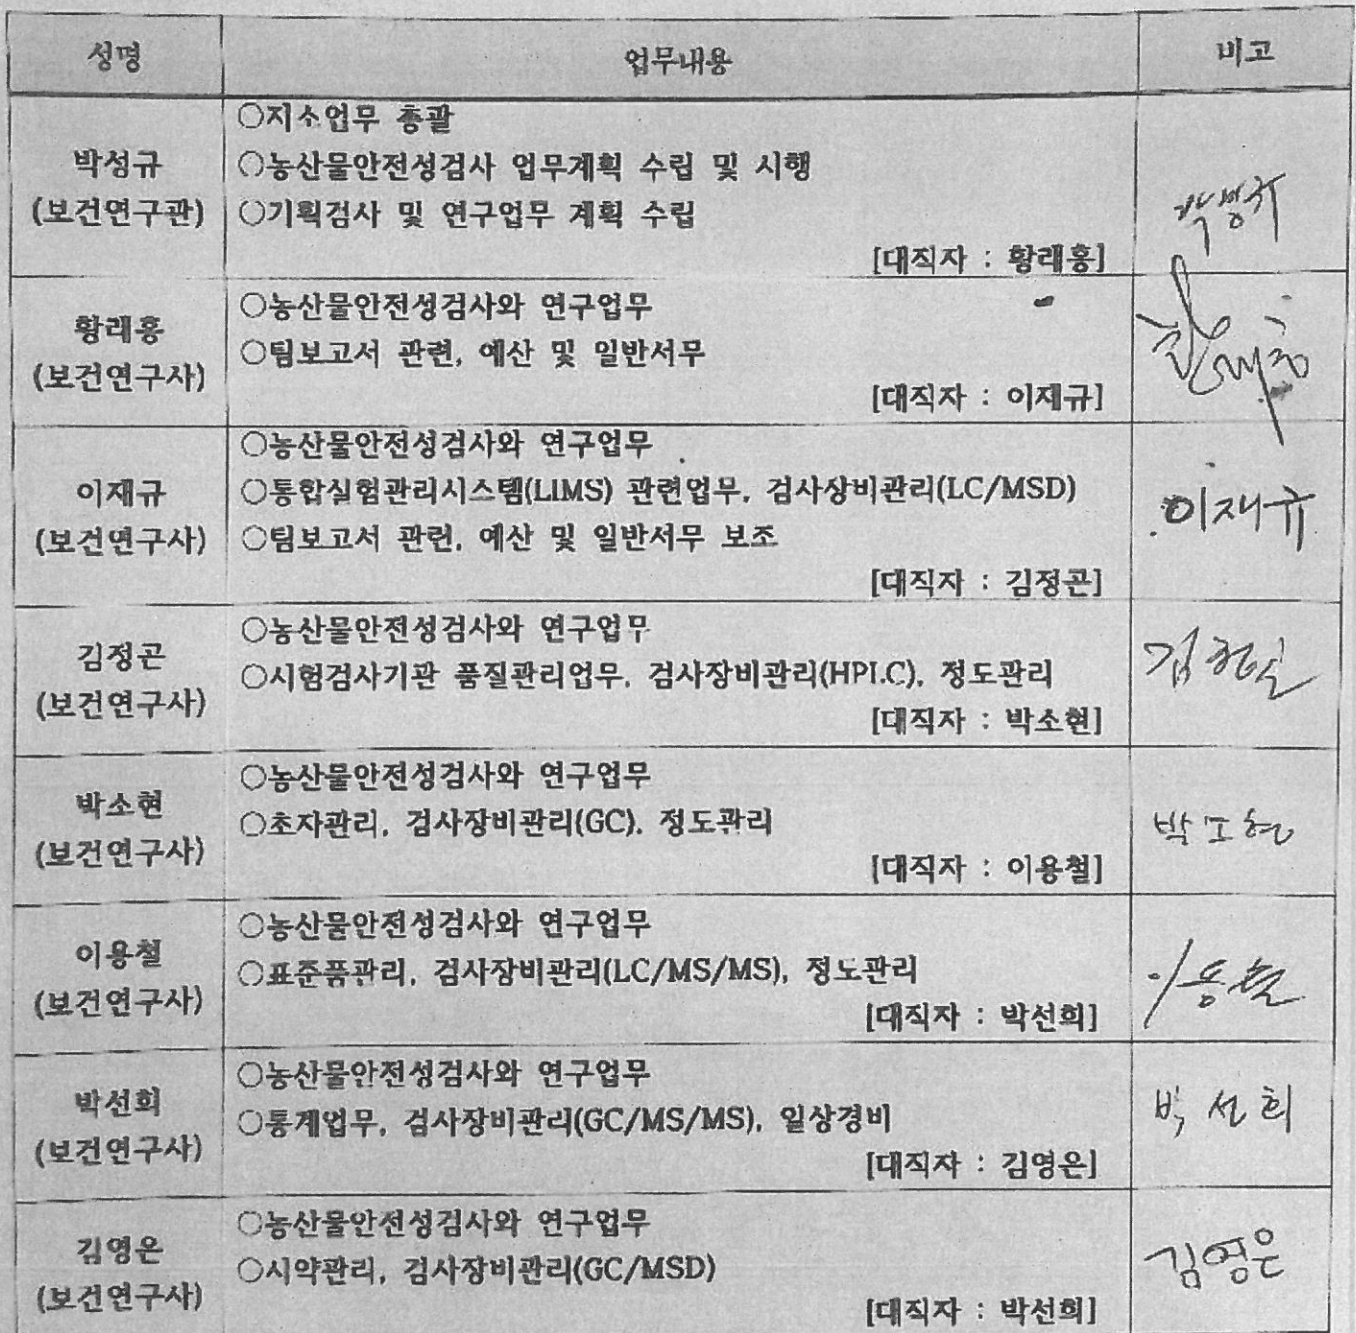 성명 업무내용 비고
박성규
(보건연구관)
○지소업무 총괄
○농산물안전성검사 업무계획 수립 및 시행
○기획검사 및 연구업무 계획 수립
[대직자 : 황래홍]
황래홍
(보건연구사)
○농산물안전성검사와 연구업무
○팀보고서 관련, 예산 및 일반서무
[대직자 : 이재규]
이재규
(보건연구사)
○농산물안전성검사와 연구업무
○통합실험관리시스템(LIMS) 관련업무, 검사장비관리(LC/MSD)
○팀보고서 관련, 예산 및 일반서무 보조
[대직자 : 김정곤]
이재규
김정곤
(보건연구사)
○농산물안전성검사와 연구업무
○시험검사기관 품질관리업무, 검사장비관리(HPLC), 정도관리
[대직자 : 박소현]
박소현
(보건연구사)
○농산물안전성검사와 연구업무
○초자관리, 검사장비관리(GC), 정도관리
[대직자 : 이용철]
박소현
이용철
(보건연구사)
○농산물안전성검사와 연구업무
○표준품관리, 검사장비관리(LC/MS/MS), 정도관리
[대직자 : 박선희]
이용철
박선희
(보건연구사)
○농산물안전성검사와 연구업무
○통계업무, 검사장비관리(GC/MS/MS), 일상경비
[대직자 : 김영은]
박선희
김영은
(보건연구사)
○농산물안전성검사와 연구업무
○시약관리, 검사장비관리(GC/MSD)
[대직자 : 박선희]
김영은